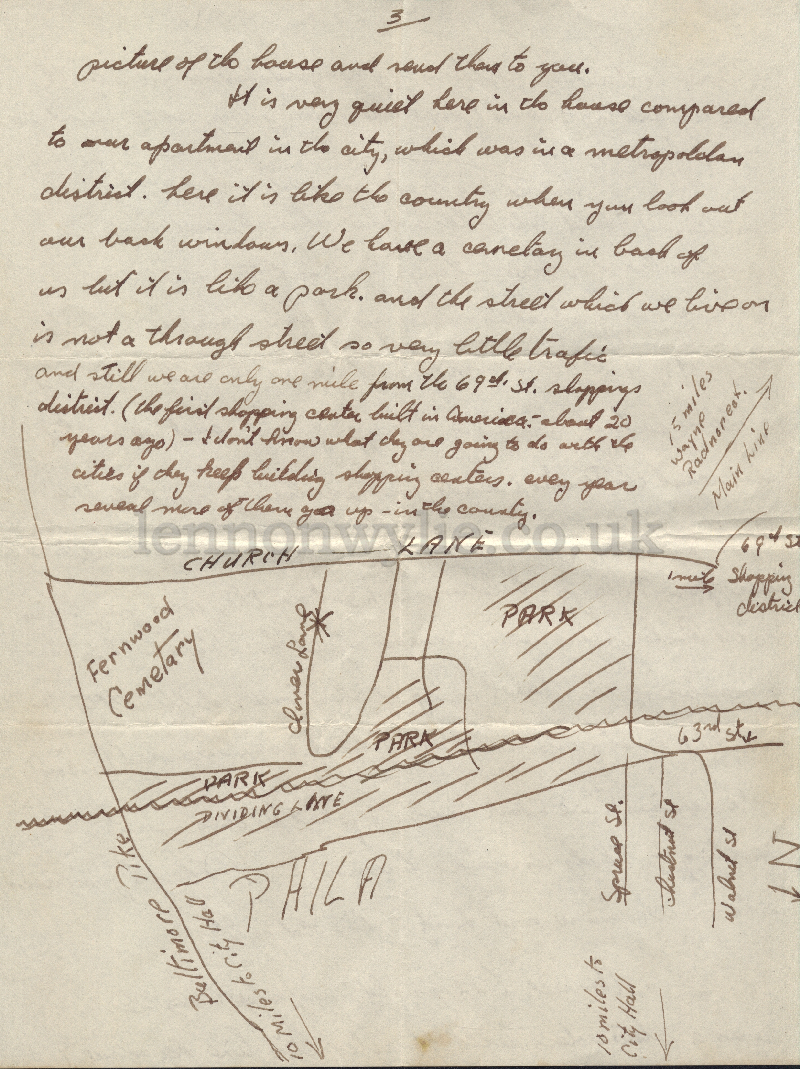 3
picture of the house and send them to you.
It is very quiet here in the house compared
to our apartment in the city, which was in a metropoldan
district. here it is like the country when you look out
our back windows. We have a cemetary in back of
us but it is like a park. and the street which we live on
is not a through street so very little trafic
and still we are only one mile from the 69th St. shopping
district. (the first shopping center built in America - about 20
years ago) - I don't know what they are going to do with the
cities if they keep building shopping centers. every year
several more of them goo up - in the county.
15 miles
Wayne
Radnor
Main Line
lennonwylie.co.uk
CHURCH LANE
69th St
Shopping
district
1 mile
Fernwood
Cemetary
Lane
PARK
PARK
63rd St
PARK
DIVIDING LANE
Baltimore Pike
10 Miles to City Hall
PHILA
Spruce St.
Chestnut St
Walnut St
N
10 miles to
City Hall